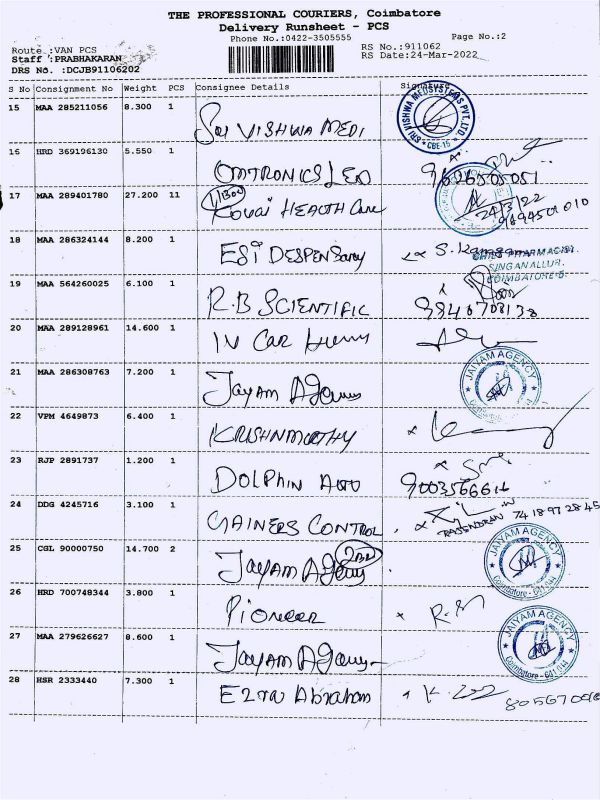 THE PROFESSIONAL COURIERS, Coimbatore
Delivery Runsheet - PCS
Phone No.:0422-3505555 Page No.:2
Route :VAN PCS RS No.:911062
Staff :PRABHAKARAN RS Date:24-Mar-2022
DRS No. :DCJB91106202
S No Consignment No Weight PCS Consignee Details Signature
15 MAA 285211056 8.300 1 Sri VISHWA MEDI SRI VISHWA MEDSYSTEMS PVT. LTD. CBE-15
16 HRD 369196130 5.550 1 OMTRONICS LED 9626505051
17 MAA 289401780 27.200 11 Kovai HEALTH Care 24/3/22 9894501010
18 MAA 286324144 8.200 1 ESI DESPENSary CHIEF PHARMACIST. SINGANALLUR. COIMBATORE-5
19 MAA 564260025 6.100 1 R.B SCIENTIFIC
20 MAA 289128961 14.600 1 IN Car
21 MAA 286308763 7.200 1 Jayam Agency JAIYAM AGENCY
22 VPM 4649873 6.400 1 KRISHNMOORTHY
23 RJP 2891737 1.200 1 DOLPHIN Auto
24 DDG 4245716 3.100 1 GAINERS CONTROL RAJENDRAN 74 18 97 28 45
25 CGL 90000750 14.700 2 Jayam Agency JAIYAM AGENCY Coimbatore - 641 044
26 HRD 700748344 3.800 1 Pioneer
27 MAA 279626627 8.600 1 Jayam Agency JAIYAM AGENCY Coimbatore - 641 044
28 HSR 2333440 7.300 1 Ezra Abraham